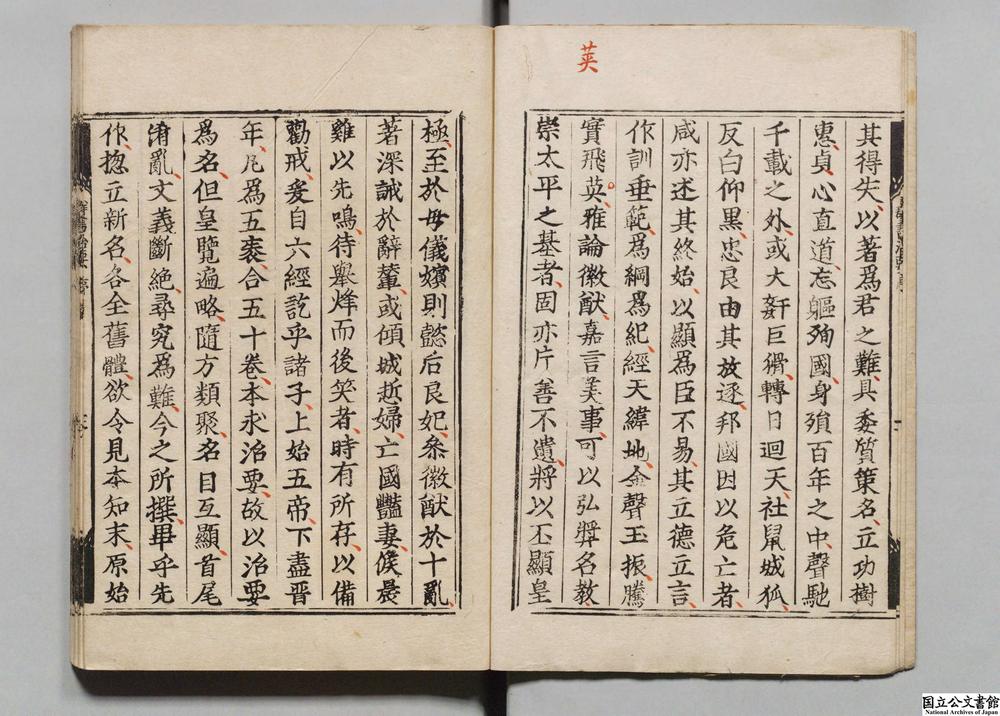 莢
其得失以著爲君之難具委質策名立功樹
惠貞心直道忘軀殉國身殞百年之中聲馳
千載之外或大奸巨猾轉日迴天社鼠城狐
反白仰黑忠良由其放逐邦國因以危亡者
咸亦述其終始以顯爲臣不易其立德立言
作訓垂範爲綱爲紀經天緯地金聲玉振騰
實飛英雅論徽猷嘉言美事可以弘奬名教
崇太平之基者固亦片善不遺將以丕顯皇
極至於母儀嬪則懿后良妃叅徽猷於十亂
著深誡於辭輦或傾城哲婦亡國豔妻候晨
雞以先鳴待舉烽而後笑者時有所存以備
勸戒爰自六經訖乎諸子上始五帝下盡晉
年凡爲五袠合五十卷本求治要故以治要
爲名但皇覽遍略隨方類聚名目互顯首尾
淆亂文義斷絶尋究爲難今之所撰異乎先
作捴立新名各全舊體欲令見本知末原始
国立公文書館
National Archives of Japan